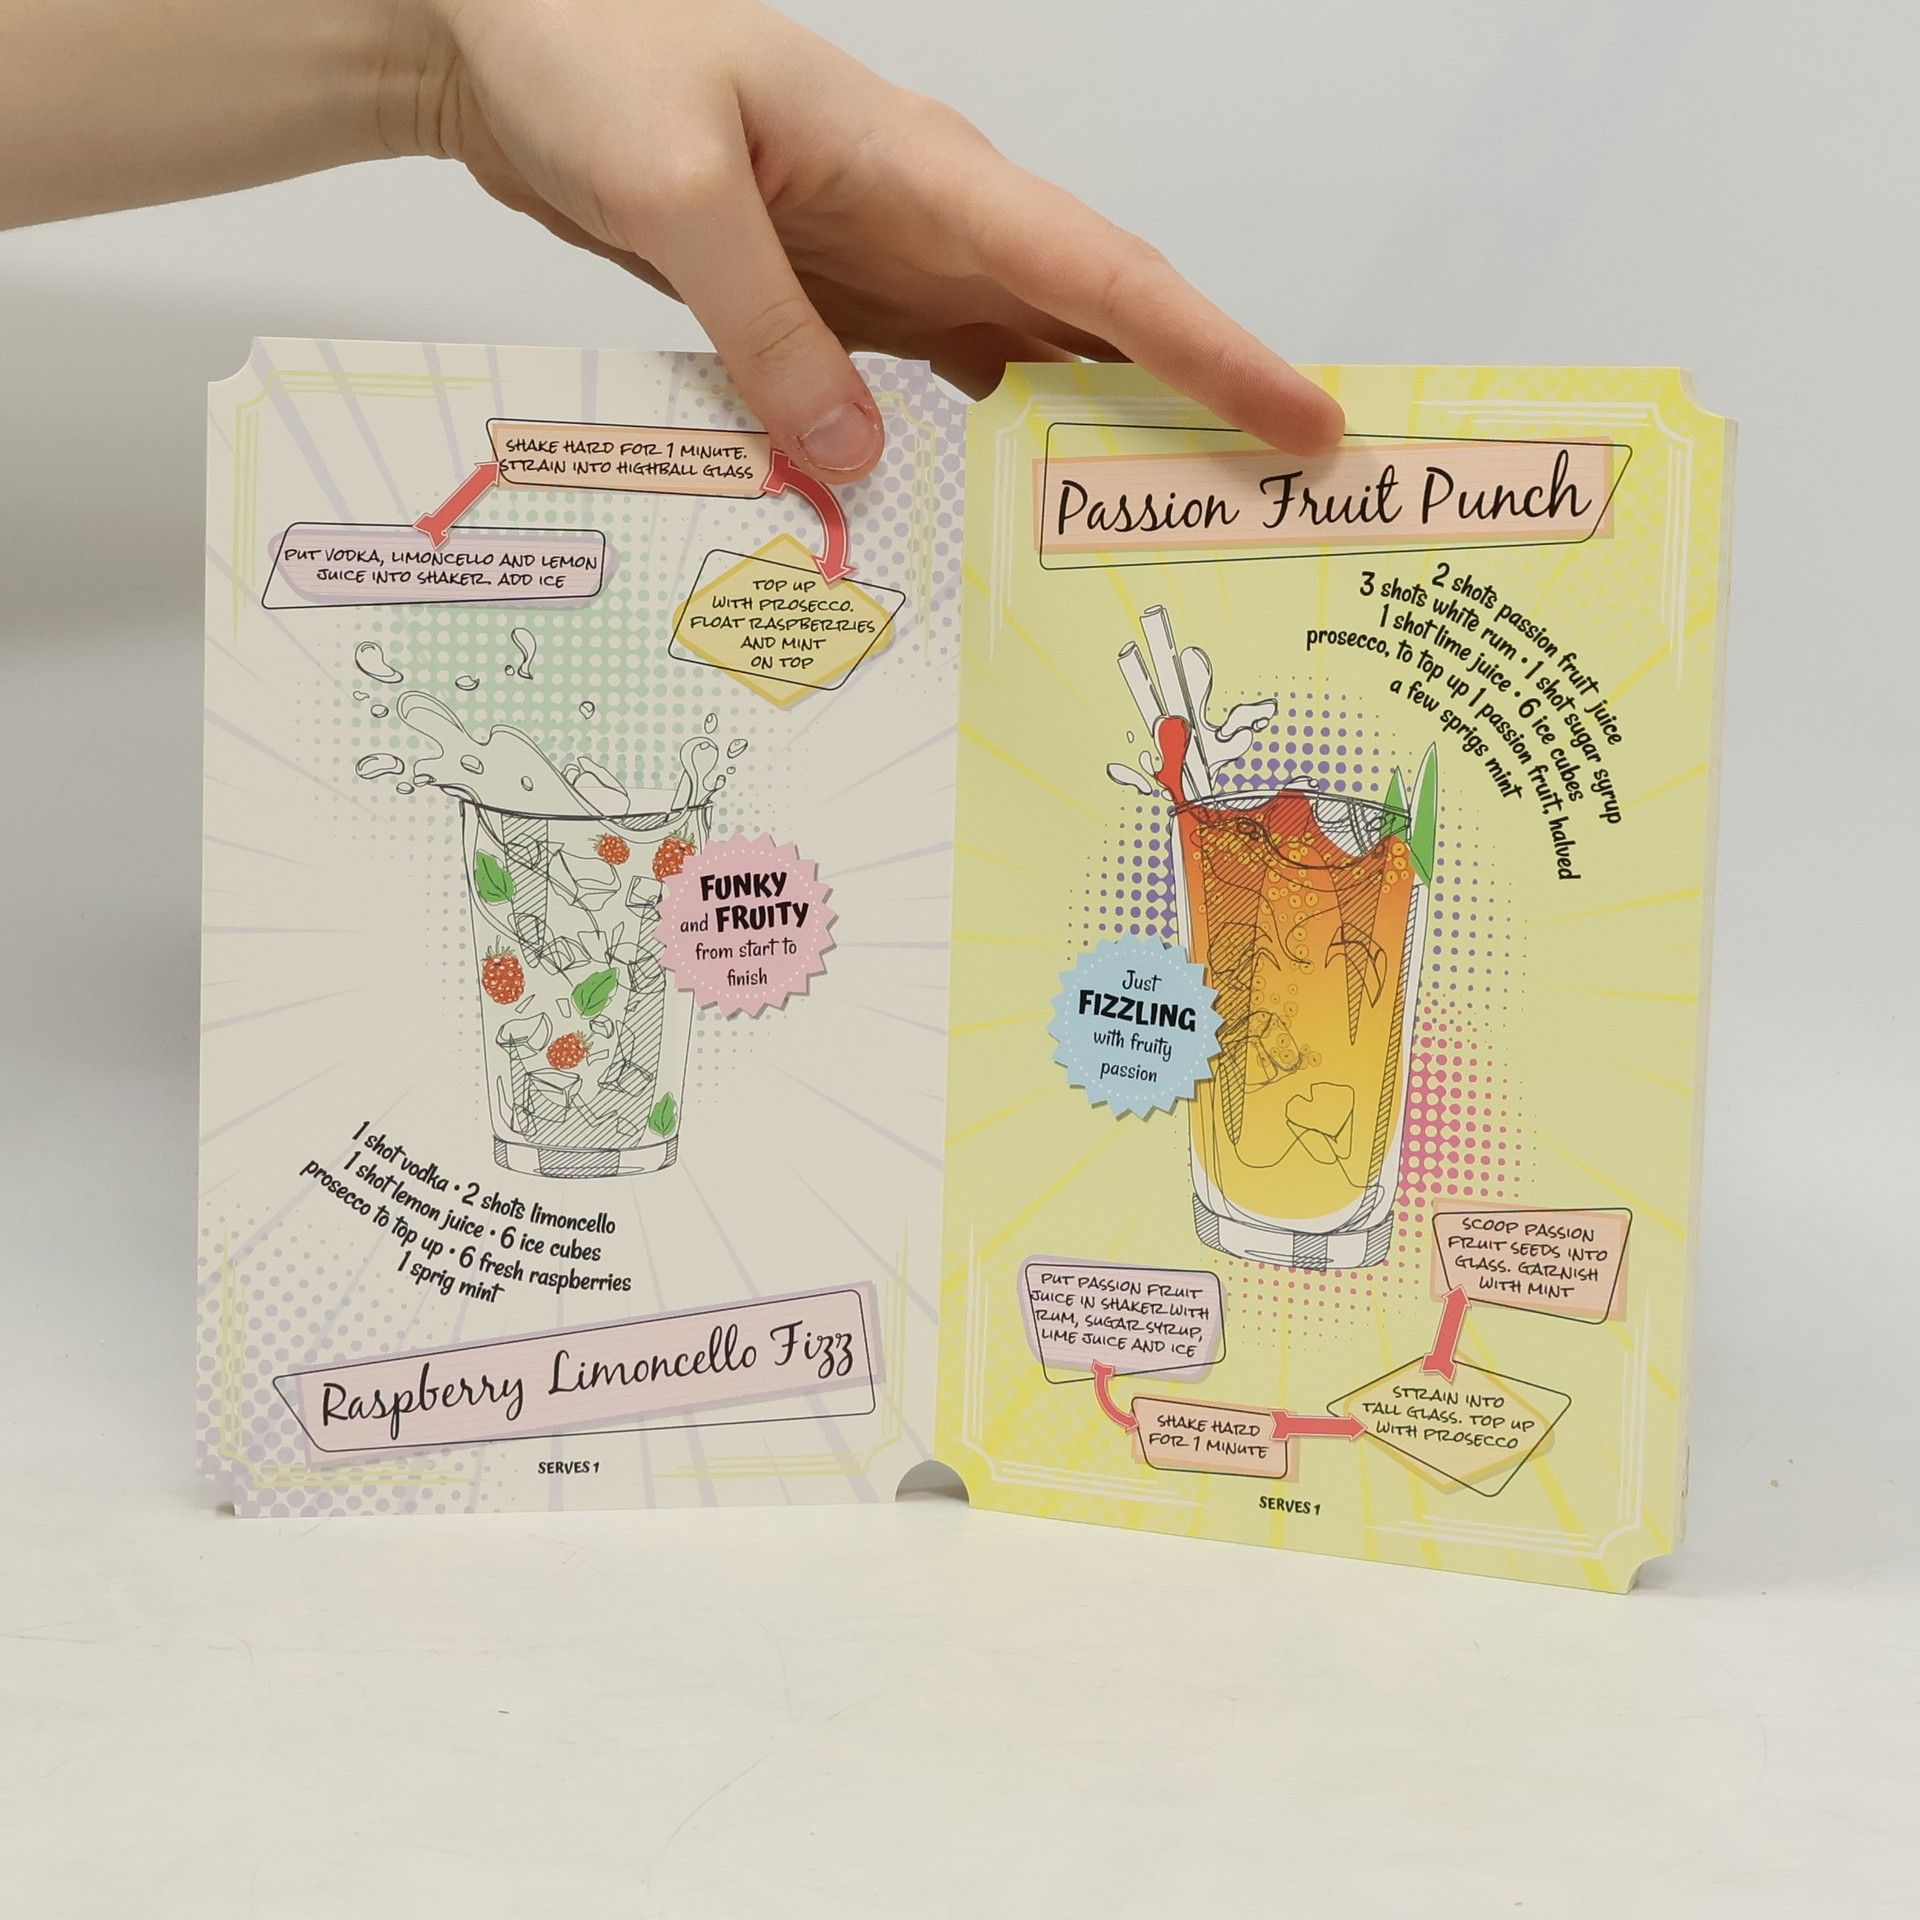 SHAKE HARD FOR 1 MINUTE.
STRAIN INTO HIGHBALL GLASS
PUT VODKA, LIMONCELLO AND LEMON
JUICE INTO SHAKER. ADD ICE
TOP UP
WITH PROSECCO.
FLOAT RASPBERRIES
AND MINT
ON TOP
FUNKY
and FRUITY
from start to
finish
1 shot vodka • 2 shots limoncello
1 shot lemon juice • 6 ice cubes
prosecco to top up • 6 fresh raspberries
1 sprig mint
Raspberry Limoncello Fizz
SERVES 1
Passion Fruit Punch
2 shots passion fruit juice
3 shots white rum • 1 shot sugar syrup
1 shot lime juice • 6 ice cubes
prosecco, to top up 1 passion fruit, halved
a few sprigs mint
Just
FIZZLING
with fruity
passion
PUT PASSION FRUIT
JUICE IN SHAKER WITH
RUM, SUGAR SYRUP,
LIME JUICE AND ICE
SHAKE HARD
FOR 1 MINUTE
STRAIN INTO
TALL GLASS. TOP UP
WITH PROSECCO
SCOOP PASSION
FRUIT SEEDS INTO
GLASS. GARNISH
WITH MINT
SERVES 1